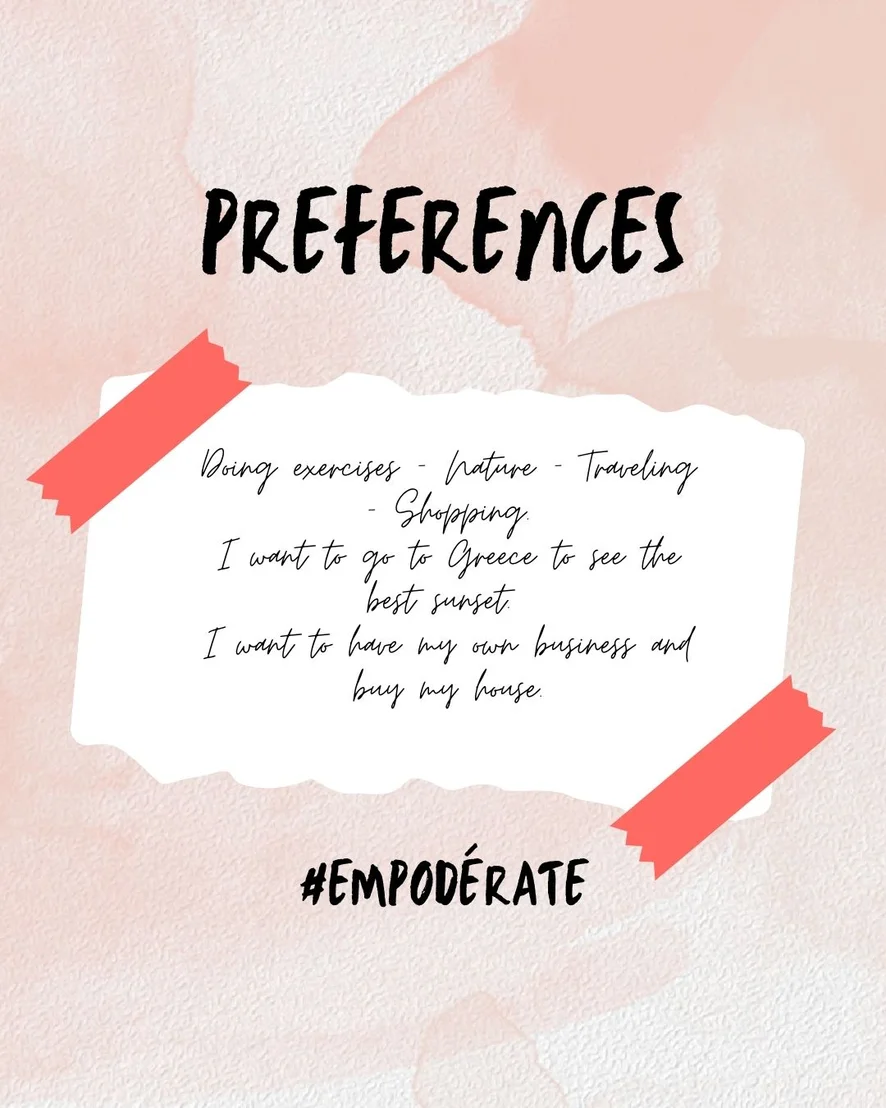 PREFERENCES
Doing exercises - Nature - Traveling
- Shopping.
I want to go to Greece to see the
best sunset.
I want to have my own business and
buy my house.
#EMPODÉRATE